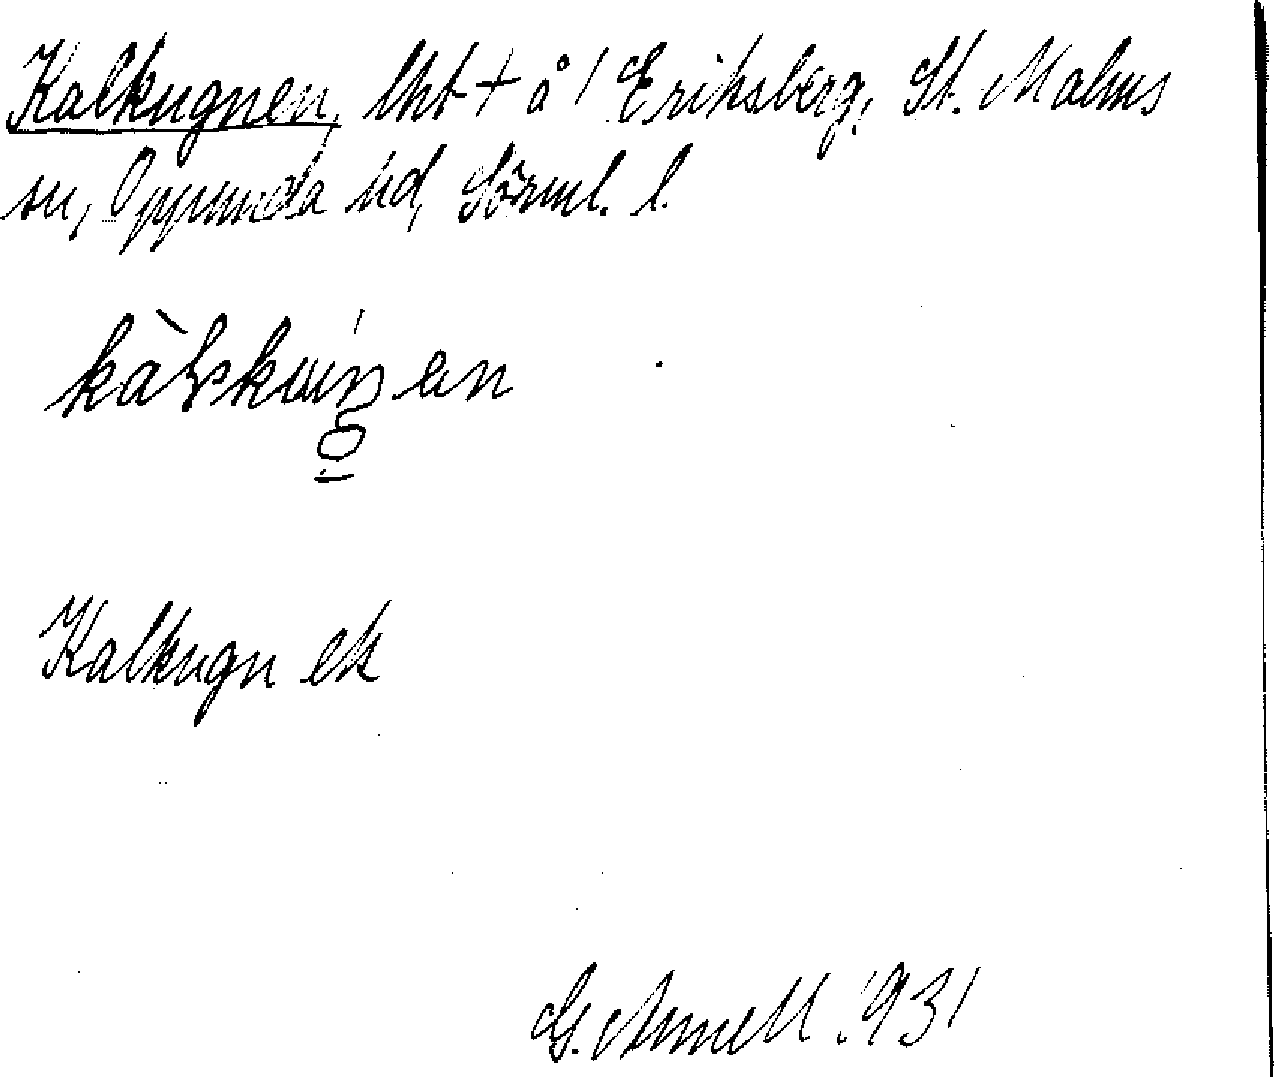 Kalkugnen, lht + å / Eriksberg, St. Malms
sn, Oppunda hd, Sörml. l.
Kalkugn ek
G. Armell. 1931